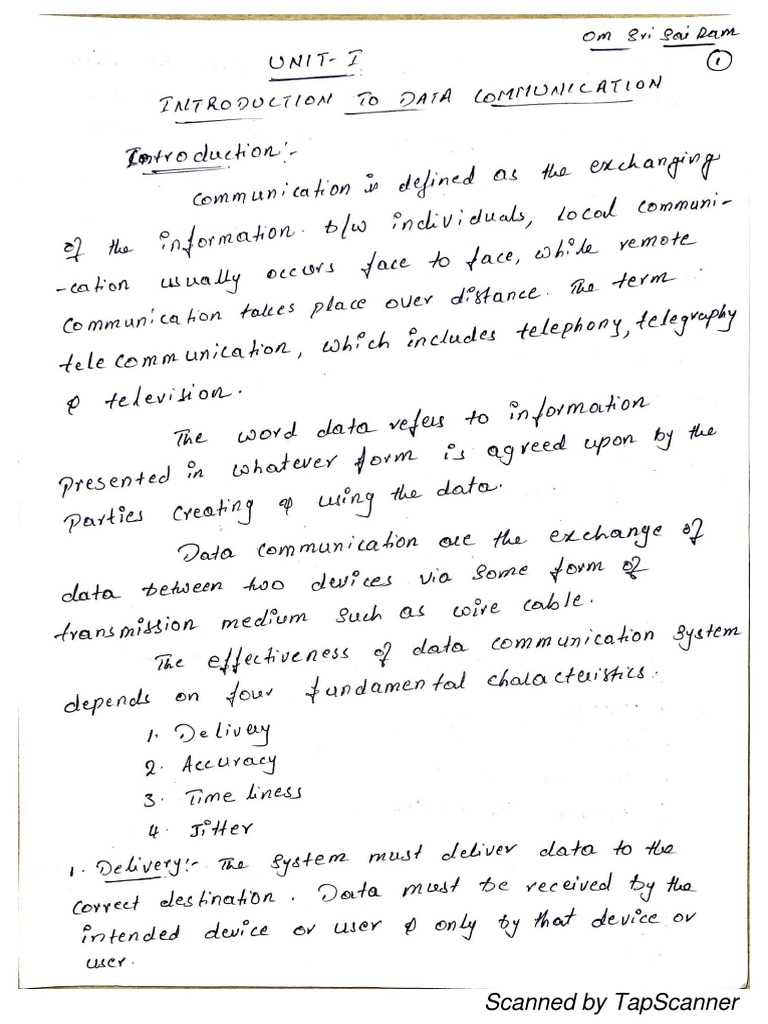 Om Sri Sai Ram
1
UNIT-I
INTRODUCTION TO DATA COMMUNICATION
Introduction:-
Communication is defined as the exchanging
of the information. b/w individuals, local communi-
-cation usually occurs face to face, while remote
communication takes place over distance. The term
tele communication, which includes telephony, telegraphy
& television.
The word data refers to information
presented in whatever form is agreed upon by the
parties creating & using the data.
Data communication are the exchange of
data between two devices via some form of
transmission medium such as wire cable.
The effectiveness of data communication system
depends on four fundamental characteristics.
1. Delivery
2. Accuracy
3. Time liness
4. Jitter
1. Delivery:- The system must deliver data to the
correct destination. Data must be received by the
intended device or user & only by that device or
user.
Scanned by TapScanner